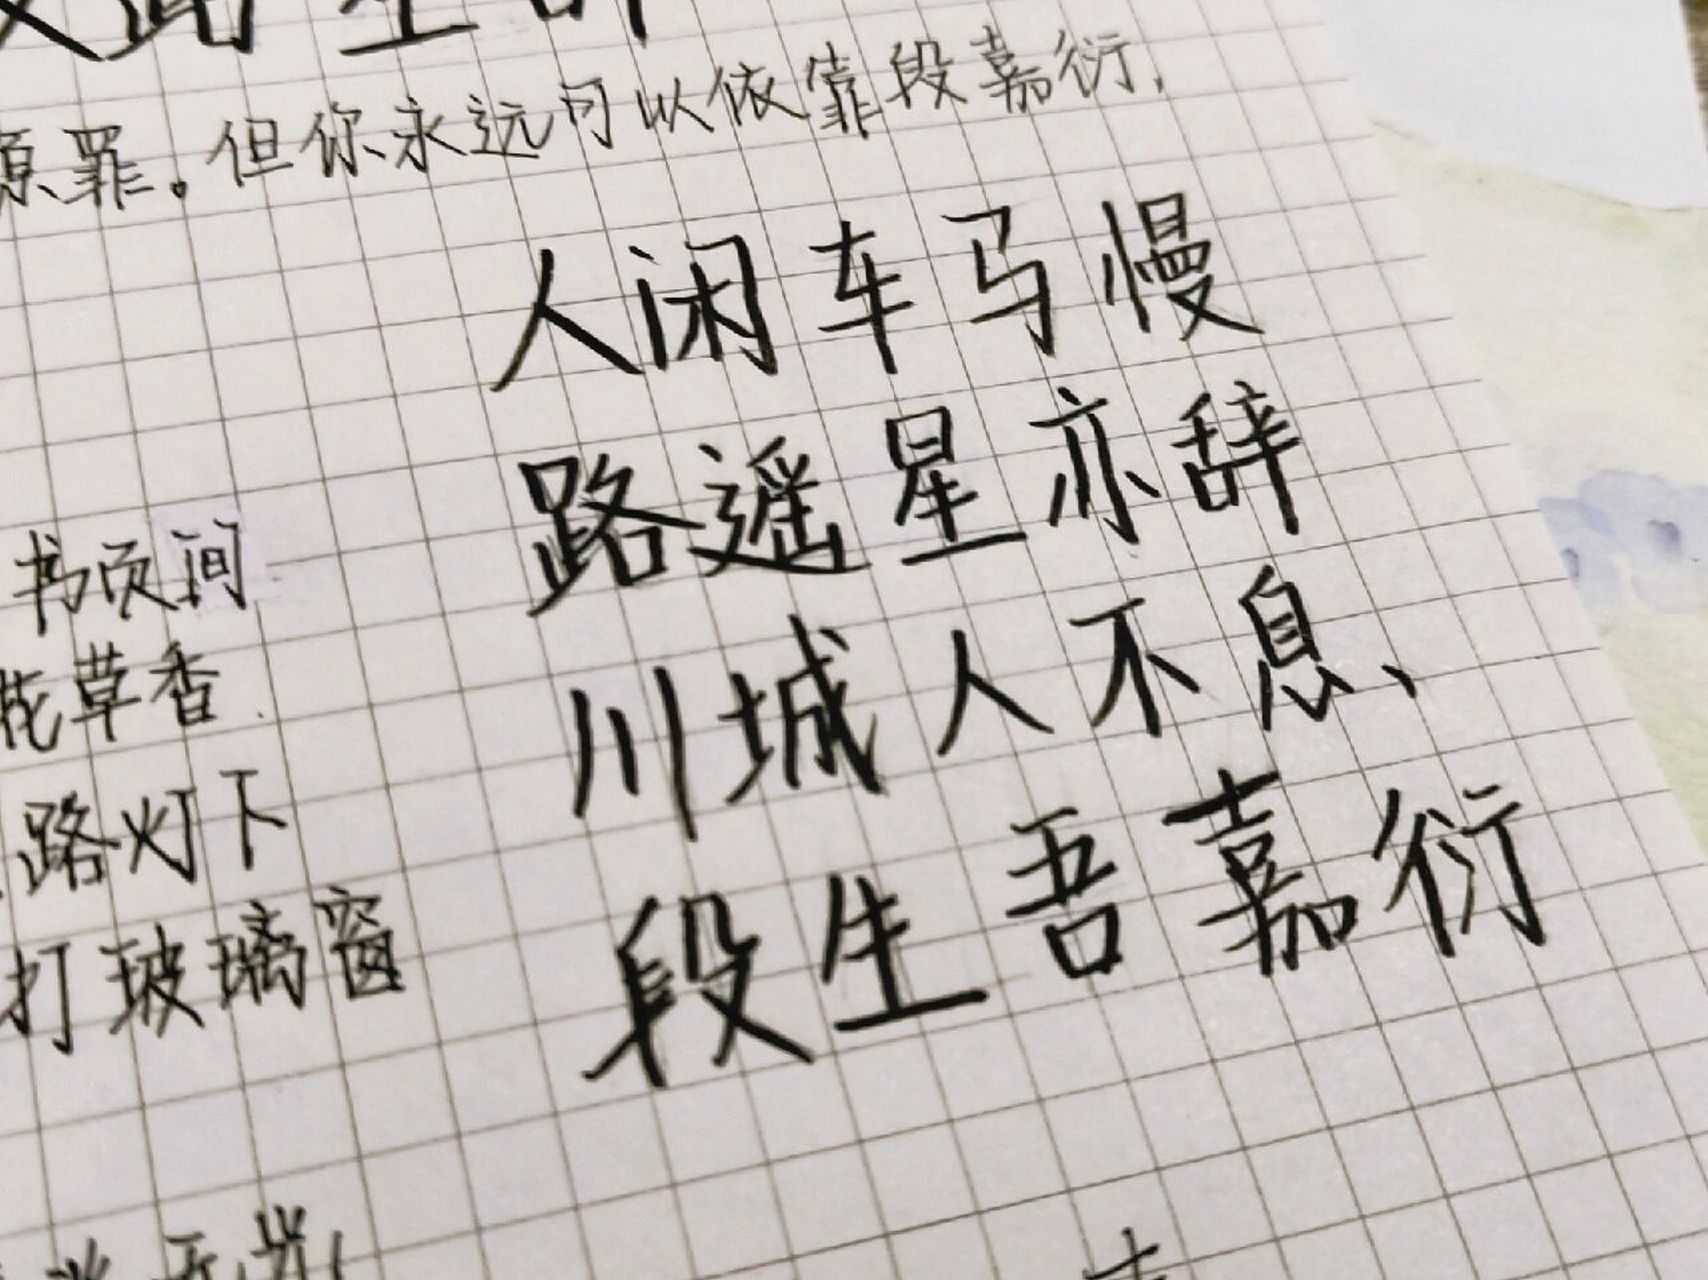 路星辞
原罪。但你永远可以依靠段嘉衍,
人闲车马慢
路遥星亦辞
川城人不息、
段生吾嘉衍
书页间
花草香
路灯下
打玻璃窗